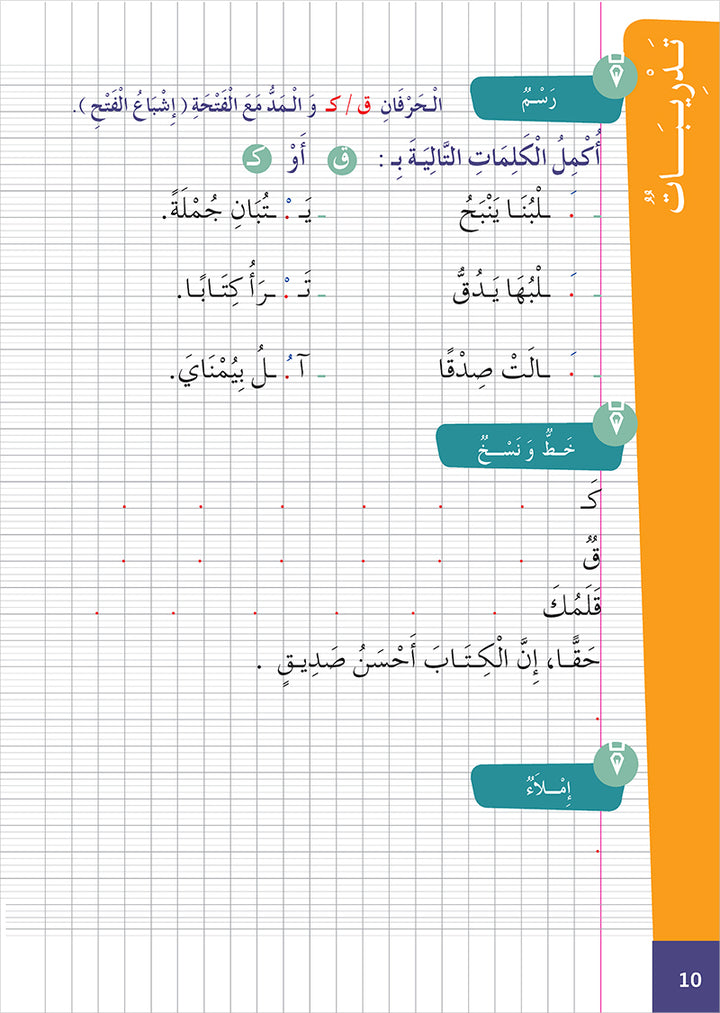 تَدْرِيبَـــاتٌ
رَسْـمٌ
الْـحَرْفَانِ ق / كـ وَ الْـمَدُّ مَعَ الْفَتْحَةِ ( إِشْبَاعُ الْفَتْحِ ) .
أُكْمِلُ الْكَلِمَاتِ التَّالِيَـةَ بِـ : ق أَوْ كـ
ـ َ . ـلْبُنَـا يَنْبَحُ ـ يَـ ْ . ـتُبَانِ جُمْلَةً .
ـ َ . ـلْبُهَا يَـدُقُّ ـ تَـ ْ . ـرَأُ كِتَـابًـا .
ـ َ . ـالَتْ صِدْقًا ـ آ ُ . ـلُ بِيُمْنَايَ .
خَـطٌّ وَ نَسْــخٌ
كَـ . . . . . .
قٌ . . . . . .
قَلَمُكَ . . . . . .
حَقًّـا، إِنَّ الْكِـتَـابَ أَحْسَنُ صَدِيـقٍ .
.
إِمْـــلَاءٌ
.
10